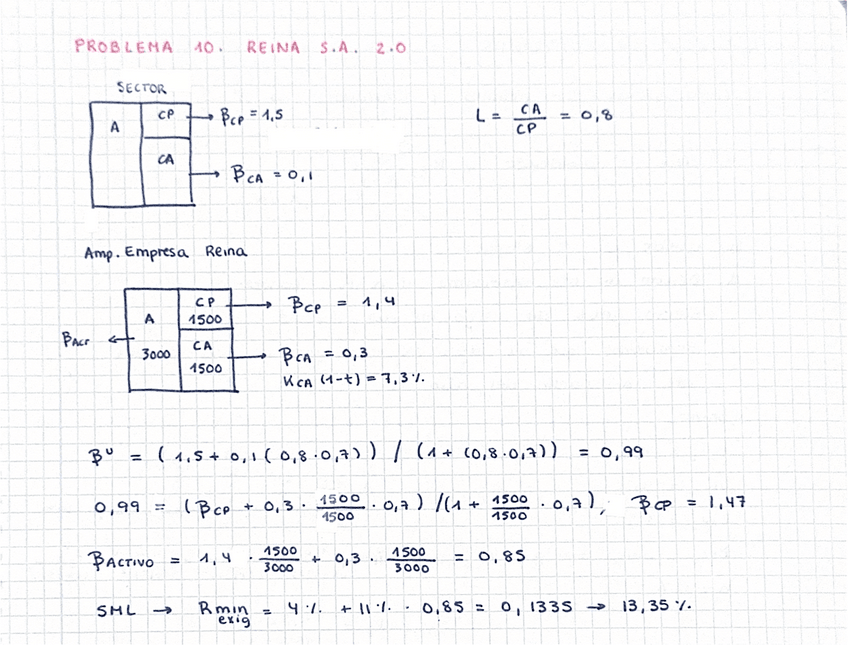 PROBLEMA 10. REINA S.A. 2.0
SECTOR
A CP → βCP = 1,5
CA → βCA = 0,1
L = CA/CP = 0,8
Amp. Empresa Reina
A 3000
CP 1500 → βCP = 1,4
βACT ←
CA 1500 → βCA = 0,3
KCA (1-t) = 7,3 %.
βU = (1,5 + 0,1 (0,8 · 0,7)) / (1 + (0,8 · 0,7)) = 0,99
0,99 = (βCP + 0,3 · 1500/1500 · 0,7) / (1 + 1500/1500 · 0,7), βCP = 1,47
βACTIVO = 1,4 · 1500/3000 + 0,3 · 1500/3000 = 0,85
SML → Rmin exig = 4 %. + 11 %. · 0,85 = 0,1335 → 13,35 %.